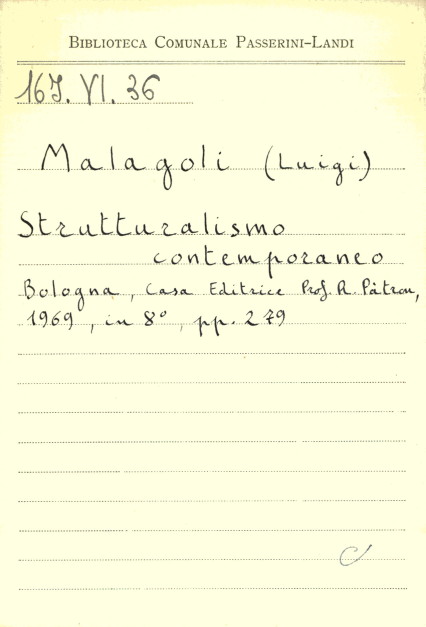 BIBLIOTECA COMUNALE PASSERINI-LANDI
16J. VI. 36
Malagoli (Luigi)
Strutturalismo
contemporaneo
Bologna, Casa Editrice Prof. R. Pàtron,
1969, in 8°, pp. 279